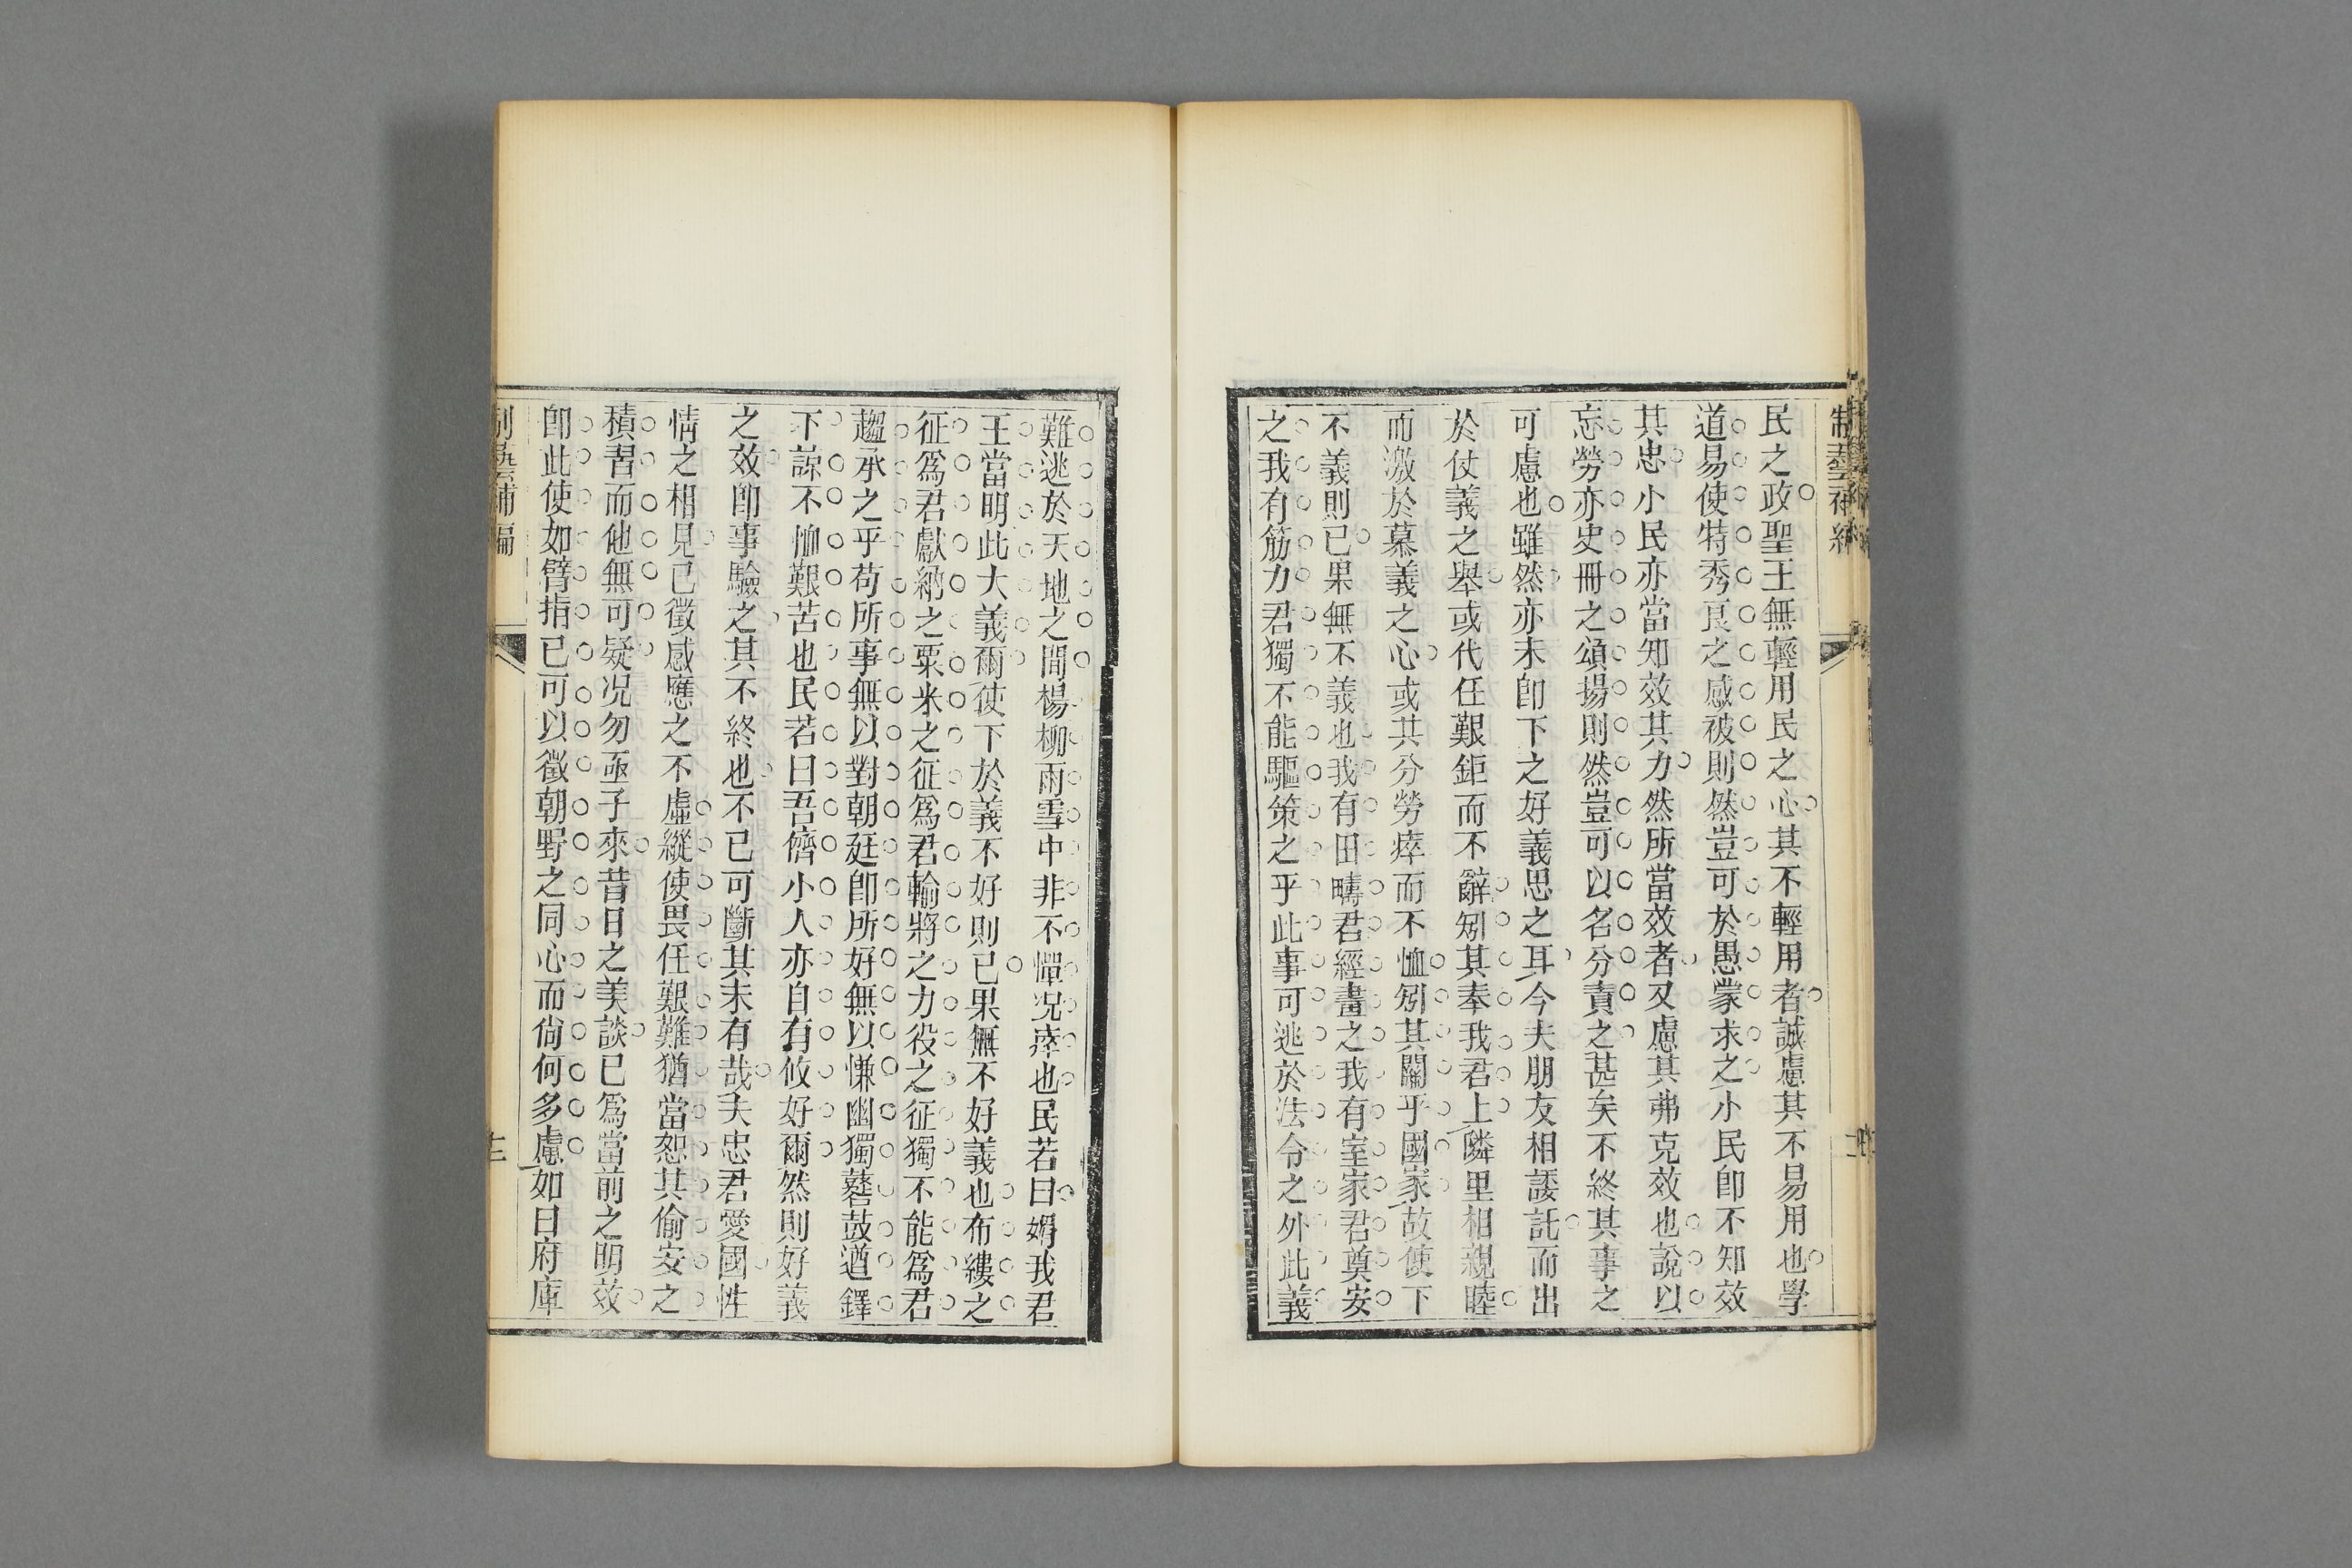 民之政聖王無輕用民之心其不輕用者誠慮其不易用也學
道易使特秀良之感被則然豈可於愚蒙求之小民卽不知效
其忠小民亦當知效其力然所當效者又慮其弗克效也說以
忘勞亦史冊之頌揚則然豈可以名分責之甚矣不終其事之
可慮也雖然亦未卽下之好義思之耳今夫朋友相諉託而出
於仗義之舉或代任艱鉅而不辭矧其奉我君上隣里相親睦
而激於慕義之心或共分勞瘁而不恤矧其關乎國家故使下
不義則已果無不義也我有田疇君經畫之我有室家君奠安
之我有筋力君獨不能驅策之乎此事可逃於法令之外此義
難逃於天地之間楊柳雨雪中非不憚況瘁也民若曰媚我君
王當明此大義爾使下於義不好則已果無不好義也布縷之
征爲君獻納之粟米之征爲君輸將之力役之征獨不能爲君
趨承之乎苟所事無以對朝廷卽所好無以慊幽獨鼛鼓遒鐸
下諒不恤艱苦也民若曰吾儕小人亦自有攸好爾然則好義
之效卽事驗之其不終也不已可斷其未有哉夫忠君愛國性
情之相見已徵感應之不虛縱使畏任艱難猶當恕其偷安之
積習而他無可疑況勿亟子來昔日之美談已爲當前之明效
卽此使如臂指已可以徵朝野之同心而尙何多慮如曰府庫
制藝補編